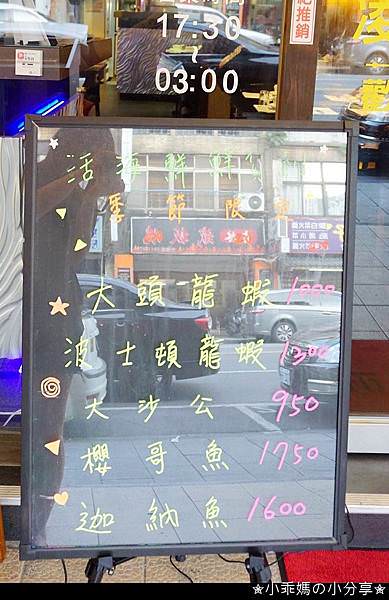 17:30
~
03:00
拒絕推銷
活海鮮
季節限定
大頭龍蝦
波士頓龍蝦 1300
大沙公 950
櫻哥魚 1750
迦納魚 1600
★小乖媽の小分享★